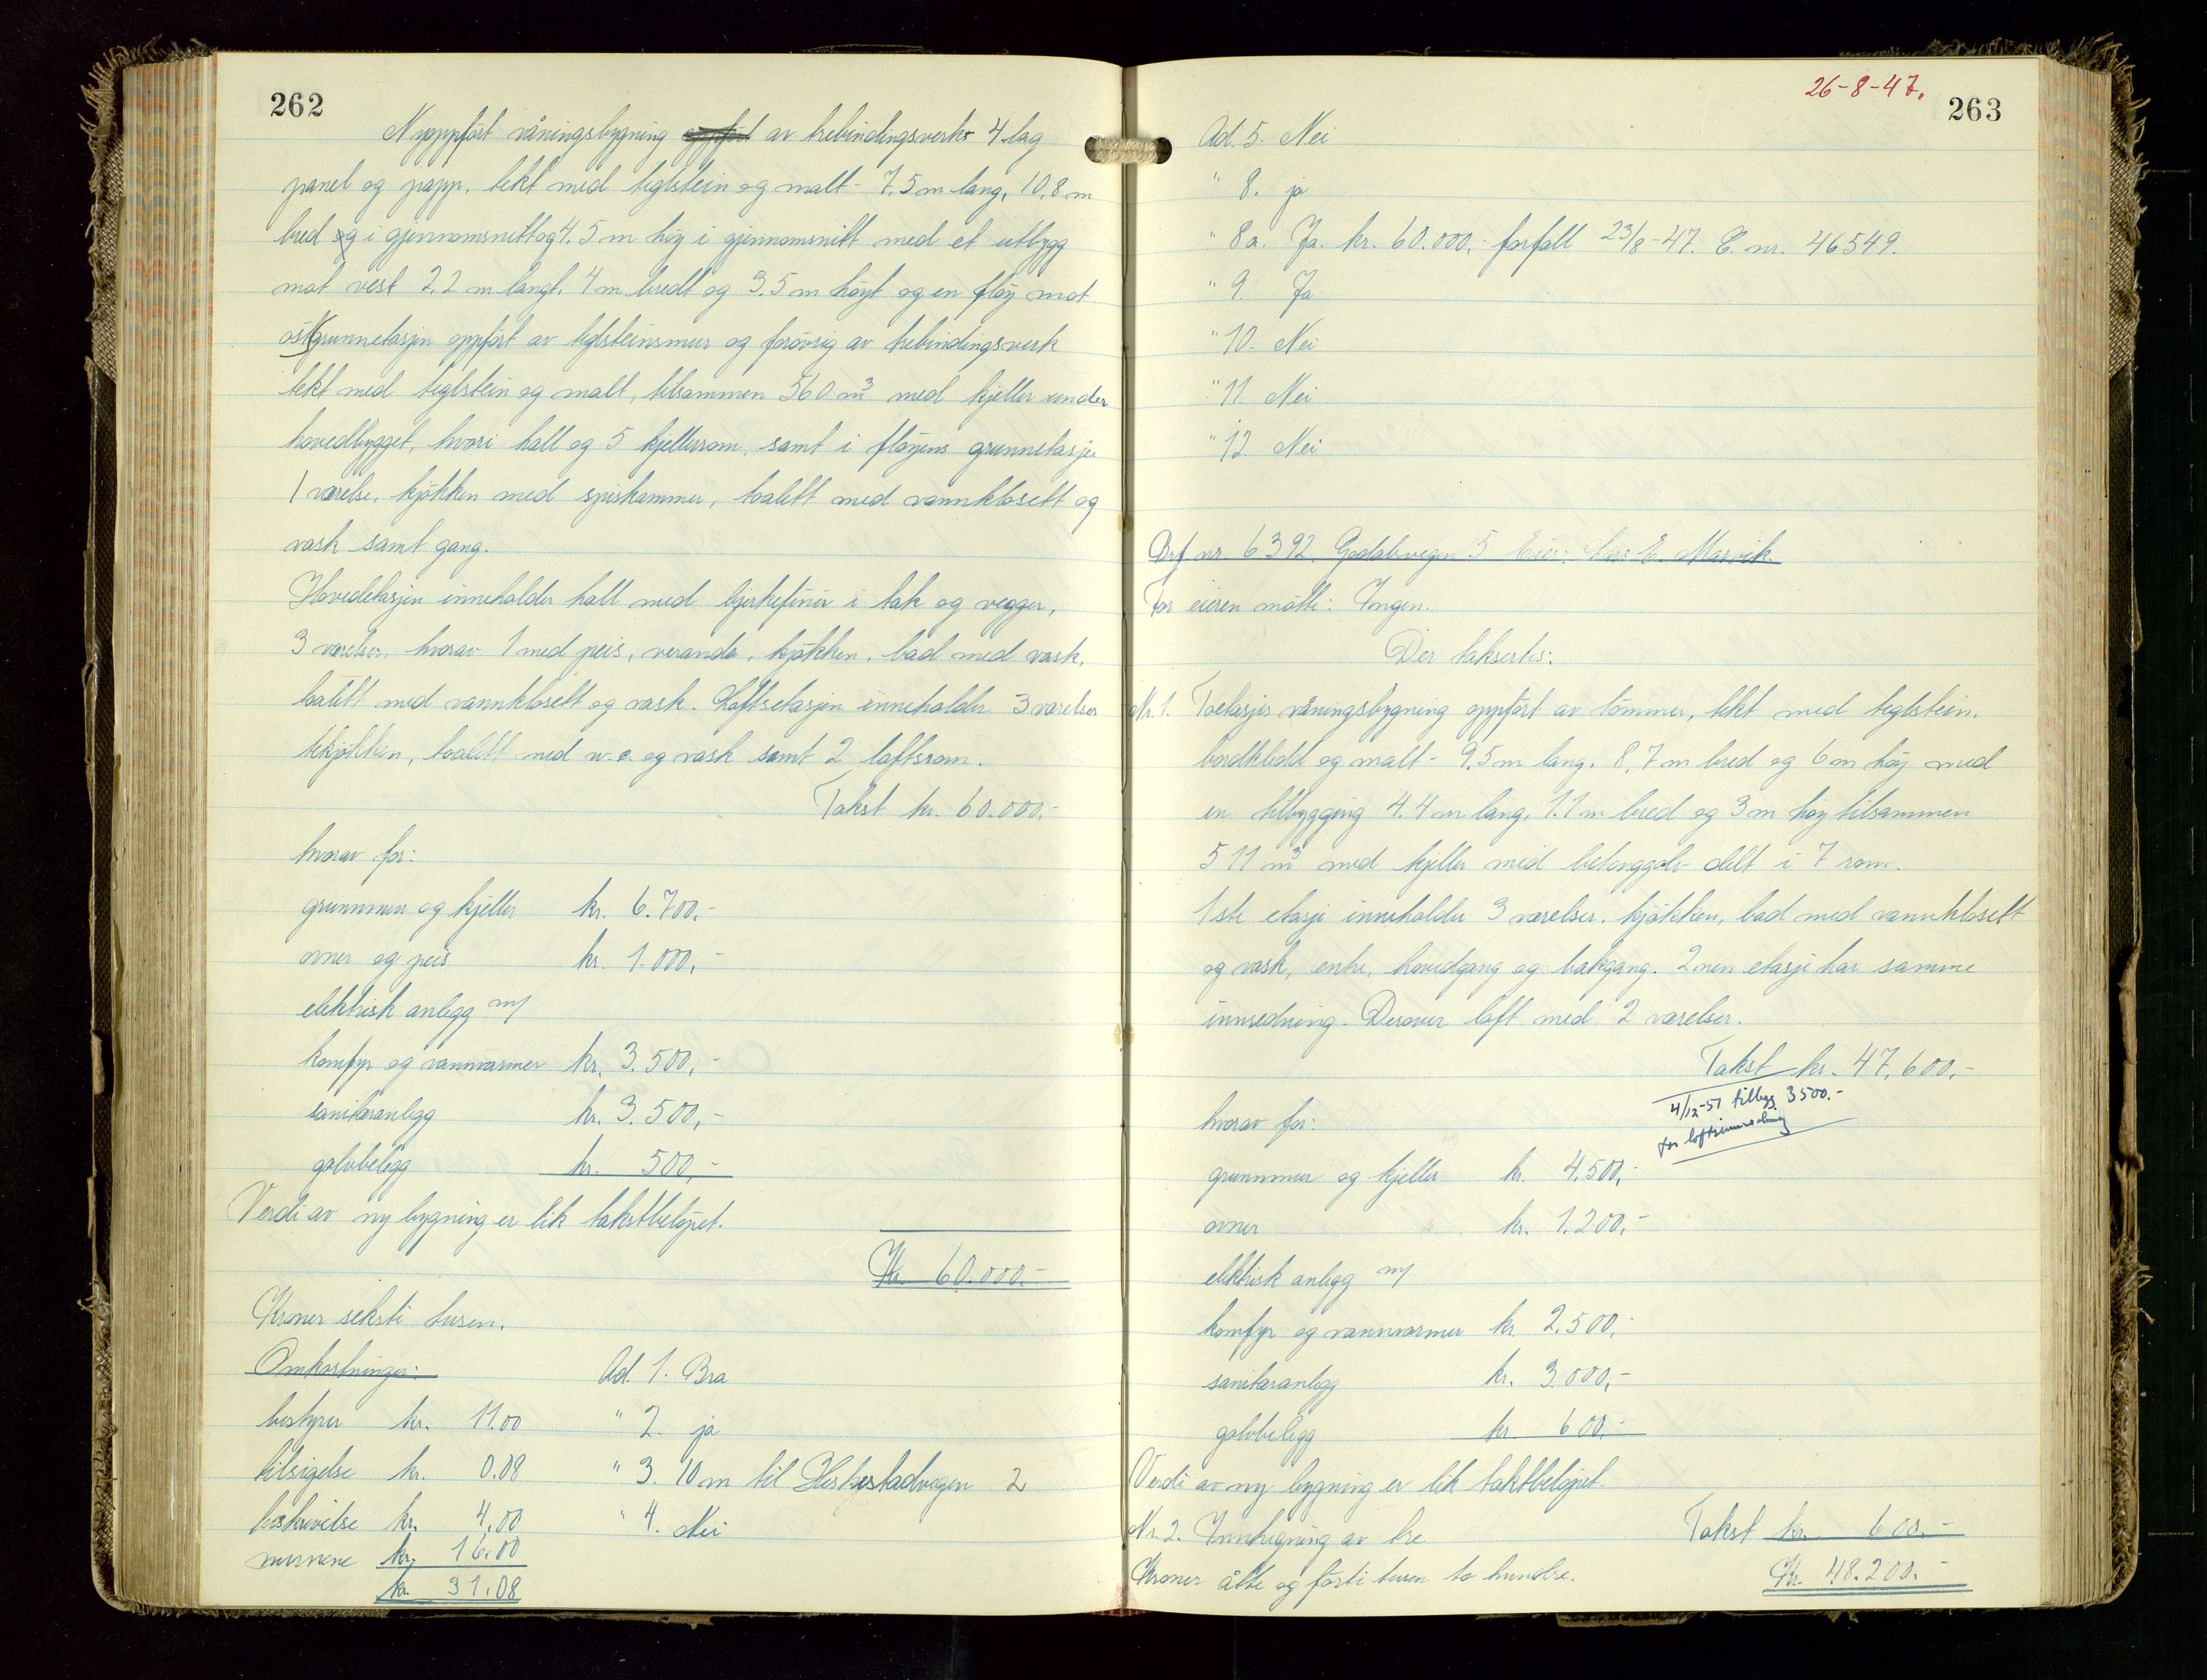 262
Nyoppført våningsbygning av trebindingsverk 4 lag
panel og papp, tekt med teglstein og malt - 7,5 m lang, 10,8 m
bred og i gjennomsnitt og 4,5 m høy i gjennomsnitt med et utbygg
mot vest 2,2 m langt, 4 m bredt og 3,5 m høyt og en fløy mot
øst grunnetasjen oppført av teglsteinsmur og forøvrig av trebindingsverk
tekt med teglstein og malt, tilsammen 560 m³ med kjeller under
hovedbygget, hvori hall og 5 kjellerrom, samt i fløyens grunnetasje
1 værelse, kjøkken med spiskammer, toalett med vannklosett og
vask samt gang.
Hovedetasjen inneholder hall med bjerkefinér i tak og vegger,
3 værelser hvorav 1 med peis, veranda, kjøkken, bad med vask,
toalett med vannklosett og vask. Loftsetasjen inneholder 3 værelser
tekjøkken, toalett med w.c. og vask samt 2 loftsrom.
Takst kr. 60.000.-
hvorav for:
grunnmur og kjeller kr. 6.700,-
ovner og peis kr. 1.000,-
elektrisk anlegg m/
komfyr og vannvarmer kr. 3.500,-
sanitæranlegg kr. 3.500,-
golvbelegg kr. 500,-
Verdi av ny bygning er lik takstbeløpet.
Kr. 60.000.-
Kroner seksti tusen.
Omkostninger: Ad. 1. Bra
bestyrer kr. 11.00 " 2. ja
tilsigelse kr. 0.08 " 3. 10 m til Heskestadvegen 2
beskrivelse kr. 4,00 " 4. Nei
mennene kr. 16.00
kr. 31.08
26-8-47.
263
Ad. 5. Nei
" 8. ja
" 8a. Ja. kr. 60.000,- forfall 23/8-47. E. nr. 46549.
" 9. Ja
" 10. Nei
" 11. Nei
" 12. Nei
Brf. nr. 6392. Godalsvegen 5 Eier: E. Marvik.
For eieren møtte: Ingen.
Der taksertes:
Nr. 1. Toetasjes våningsbygning oppført av tømmer, tekt med teglstein,
bordkledd og malt - 9,5 m lang, 8,7 m bred og 6 m høy med
en tilbygging 4.4 m lang, 1.1 m bred og 3 m høy tilsammen
511 m³ med kjeller med betonggolv delt i 7 rom.
1ste etasje inneholder 3 værelser, kjøkken, bad med vannklosett
og vask, entre, hovedgang og bakgang. 2nen etasje har samme
innredning. Derover loft med 2 værelser.
Takst kr. 47.600,-
4/12-51 tillegg 3500.-
for loftsinnredning
hvorav for:
grunnmur og kjeller kr. 4.500,-
ovner kr. 1.200,-
elektrisk anlegg m/
komfyr og vannvarmer kr. 2.500,-
sanitæranlegg kr. 3.000,-
golvbelegg kr. 600.-
Verdi av ny bygning er lik takstbeløpet.
Nr. 2. Innhegning av tre Takst kr. 600.-
Kroner åtte og førti tusen to hundre. Kr. 48.200.-